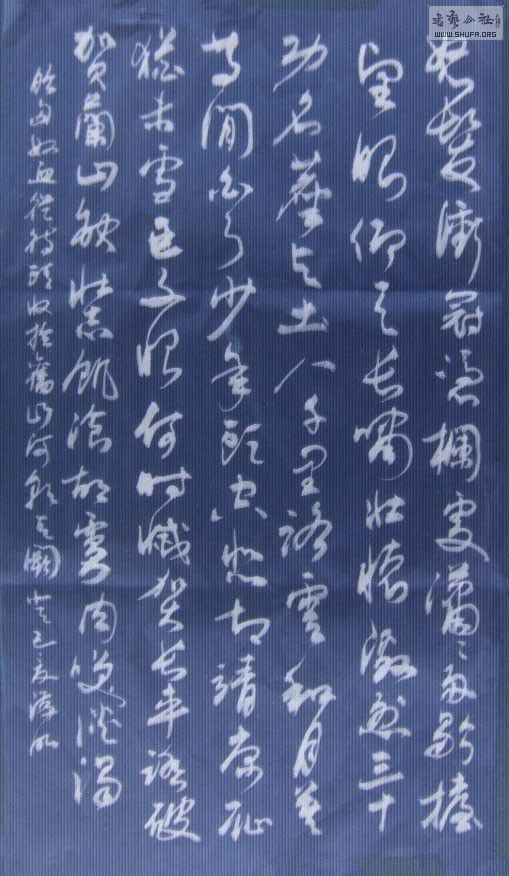 怒髮衝冠憑欄處瀟〻雨歇擡
望眼仰天長嘯壯懷激烈三十
功名塵與土八千里路雲和月莫
等閒白了少年頭空悲切靖康恥
猶未雪臣子恨何時滅駕長車踏破
賀蘭山缺壯志飢湌胡虜肉笑談渴
飲匈奴血從待頭收拾舊山河朝天闕
书艺公社
WWW.SHUFA.ORG